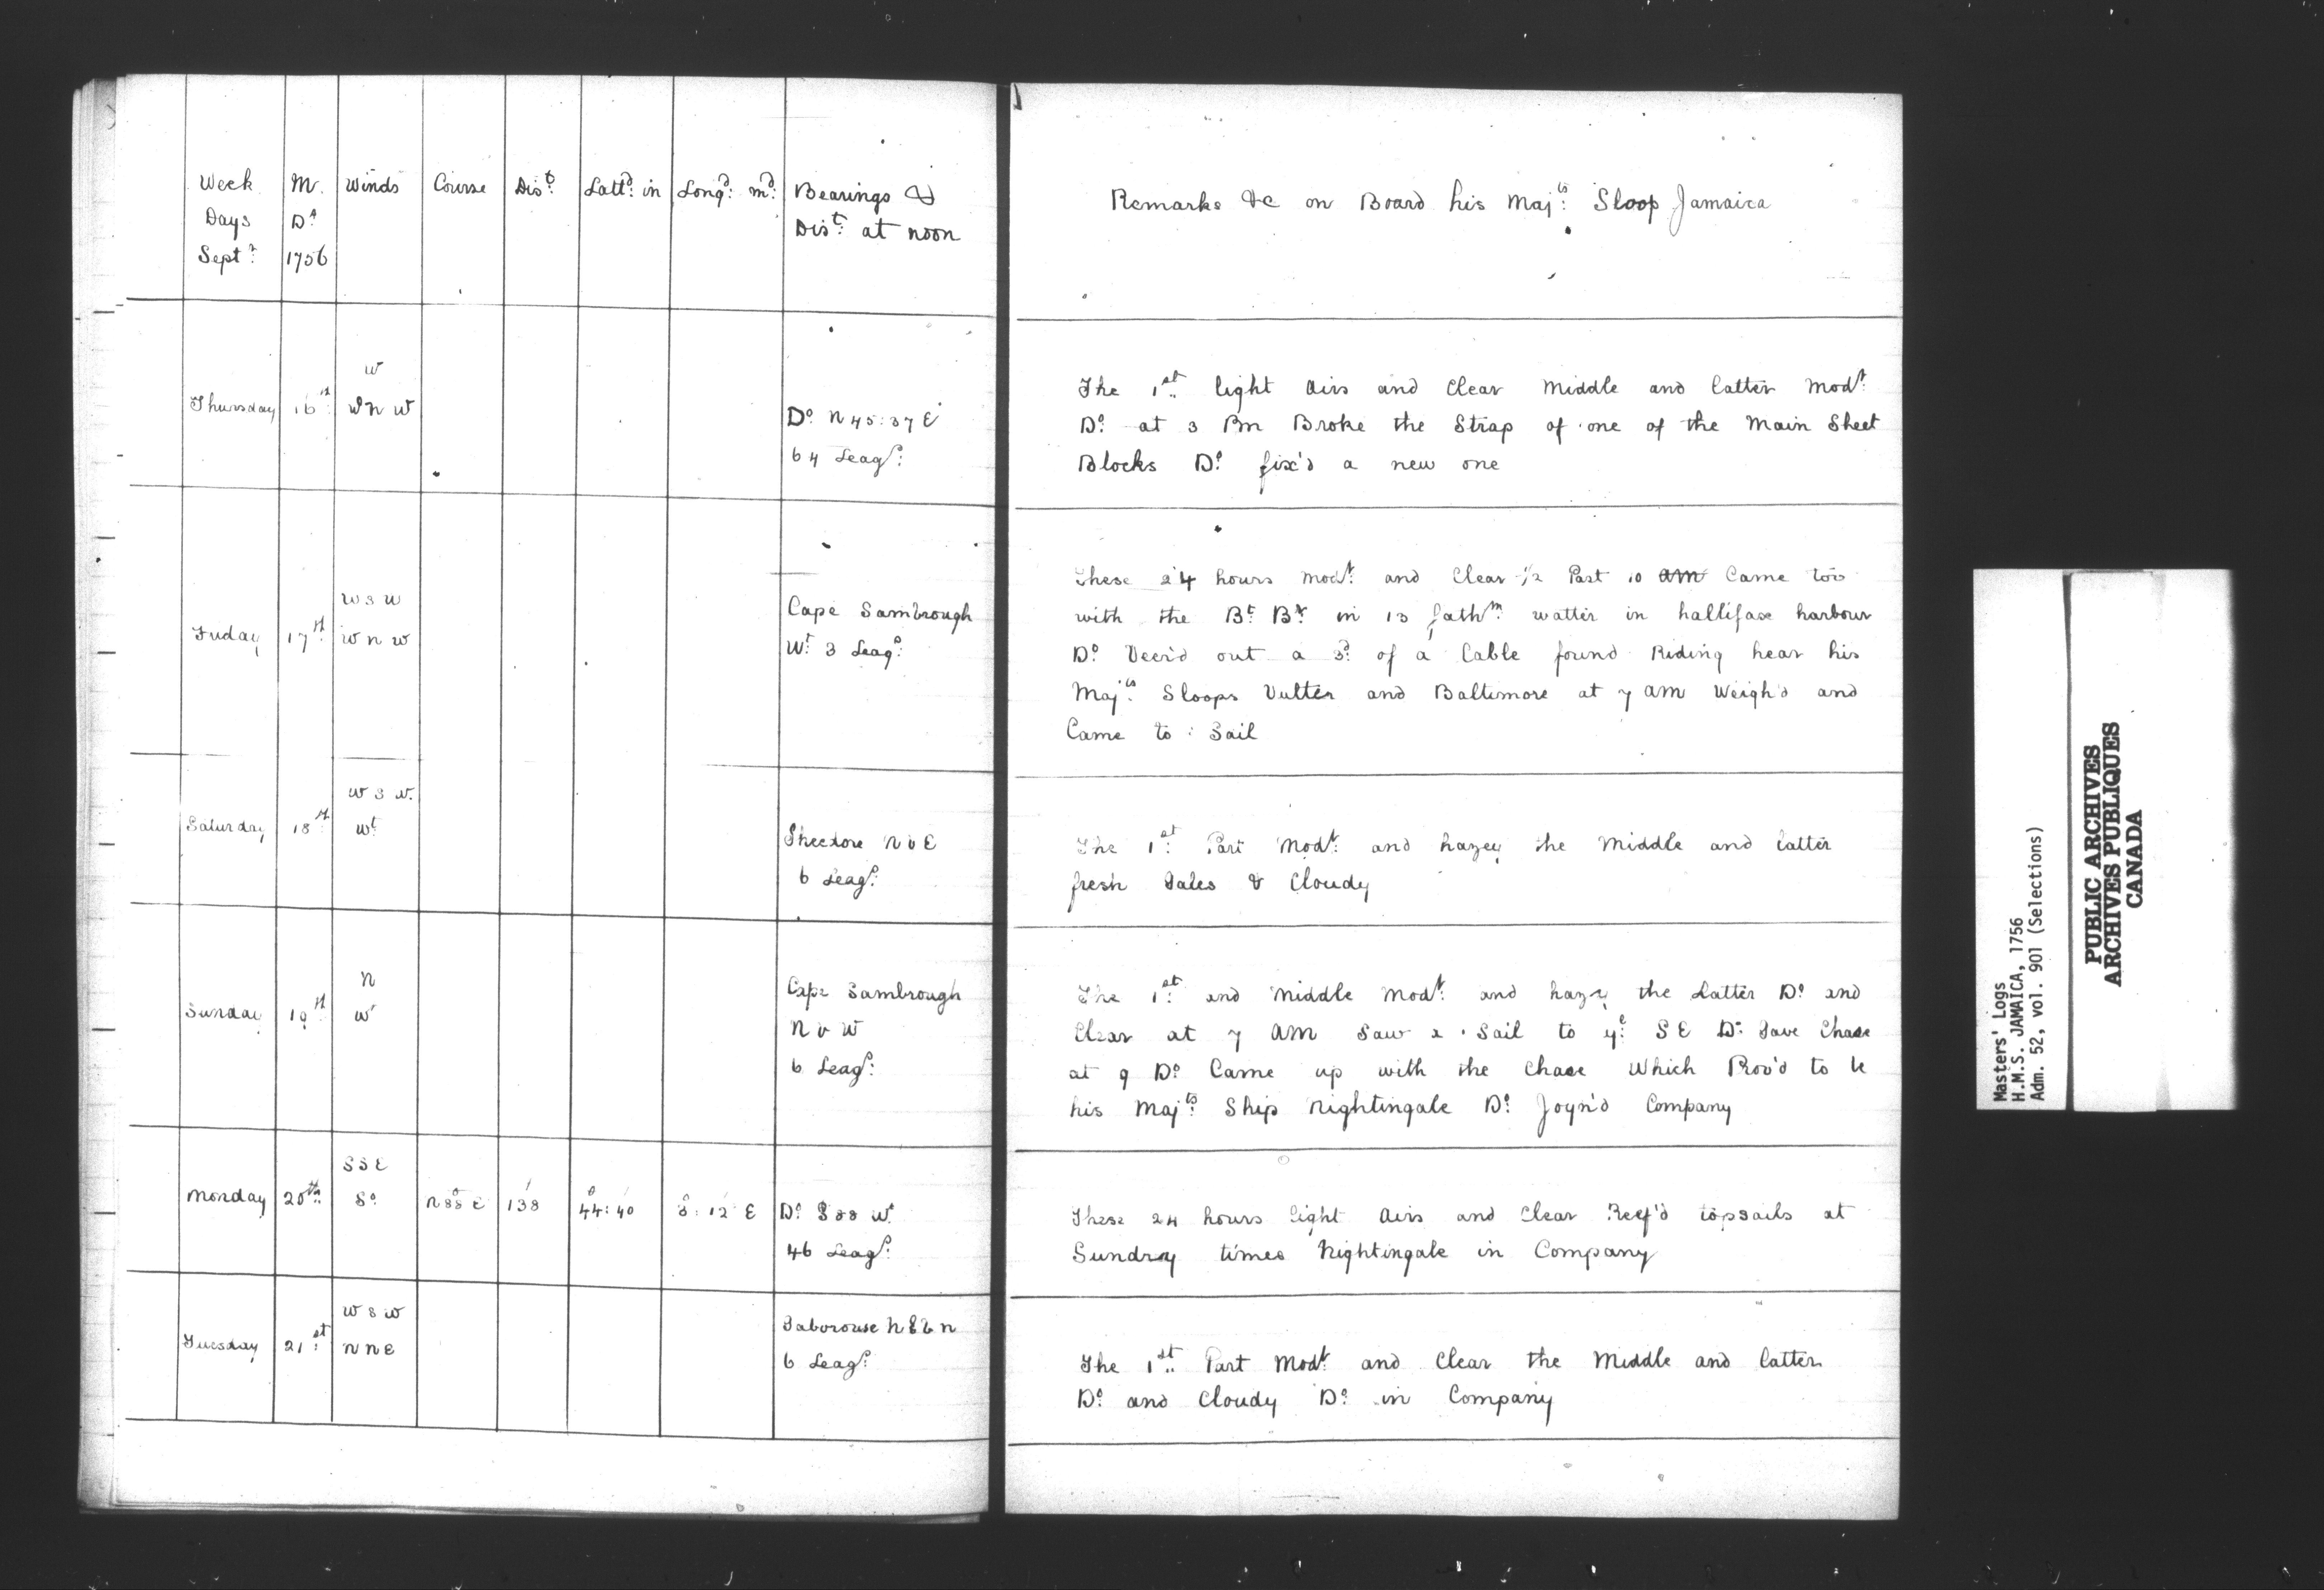 Week Days Sept.r
M. D.s 1756
Winds
Course
Dis.t
Latt.d in
Long.d m.d
Bearings &
Dis.t at noon
Remarks &c on Board his Maj.ts Sloop Jamaica
Thursday 16.th
W
W N W
D.o N 45:37 E
64 Leag.s
The 1.st light airs and Clear Middle and latter Mod.t
D.o at 3 Pm Broke the Strap of one of the Main Sheet
Blocks D.o fix'd a new one
Friday 17.th
W S W
W N W
Cape Sambrough
W.t 3 Leag.s
These 24 hours Mod.t and Clear 1/2 Past 10 am Came too
with the B.t B.r in 13 fath.m watter in hallifax harbour
D.o Veer'd out a 3.d of a Cable found Riding hear his
Maj.ts Sloops Vulter and Baltimore at 7 am Weigh'd and
Came to Sail
Saturday 18.th
W S W
W.t
N b E
6 Leag.s
The 1.st Part Mod.t and hazey the Middle and latter
fresh Gales & Cloudy
Sunday 19.th
N
W
Cape Sambrough
N b W
6 Leag.s
The 1.st and Middle Mod.t and hazy the Latter D.o and
Clear at 7 am Saw a Sail to y.e S E D.o Gave Chase
at 9 D.o Came up with the Chace Which Prov'd to be
his Maj.ts Ship Nightingale D.o Joyn'd Company
Monday 20.th
S S E
S.o
N 88 E
138
44:40
3:12 E
D.o S 88 W.t
46 Leag.s
These 24 hours light airs and Clear Reef'd topsails at
Sundry times Nightingale in Company
Tuesday 21.st
W S W
N N E
Gaborouse N E b N
6 Leag.s
The 1.st Part Mod.t and Clear the Middle and latter
D.o and Cloudy D.o in Company
Masters' Logs
H.M.S. JAMAICA, 1756
Adm. 52, vol. 901 (Selections)
PUBLIC ARCHIVES
ARCHIVES PUBLIQUES
CANADA